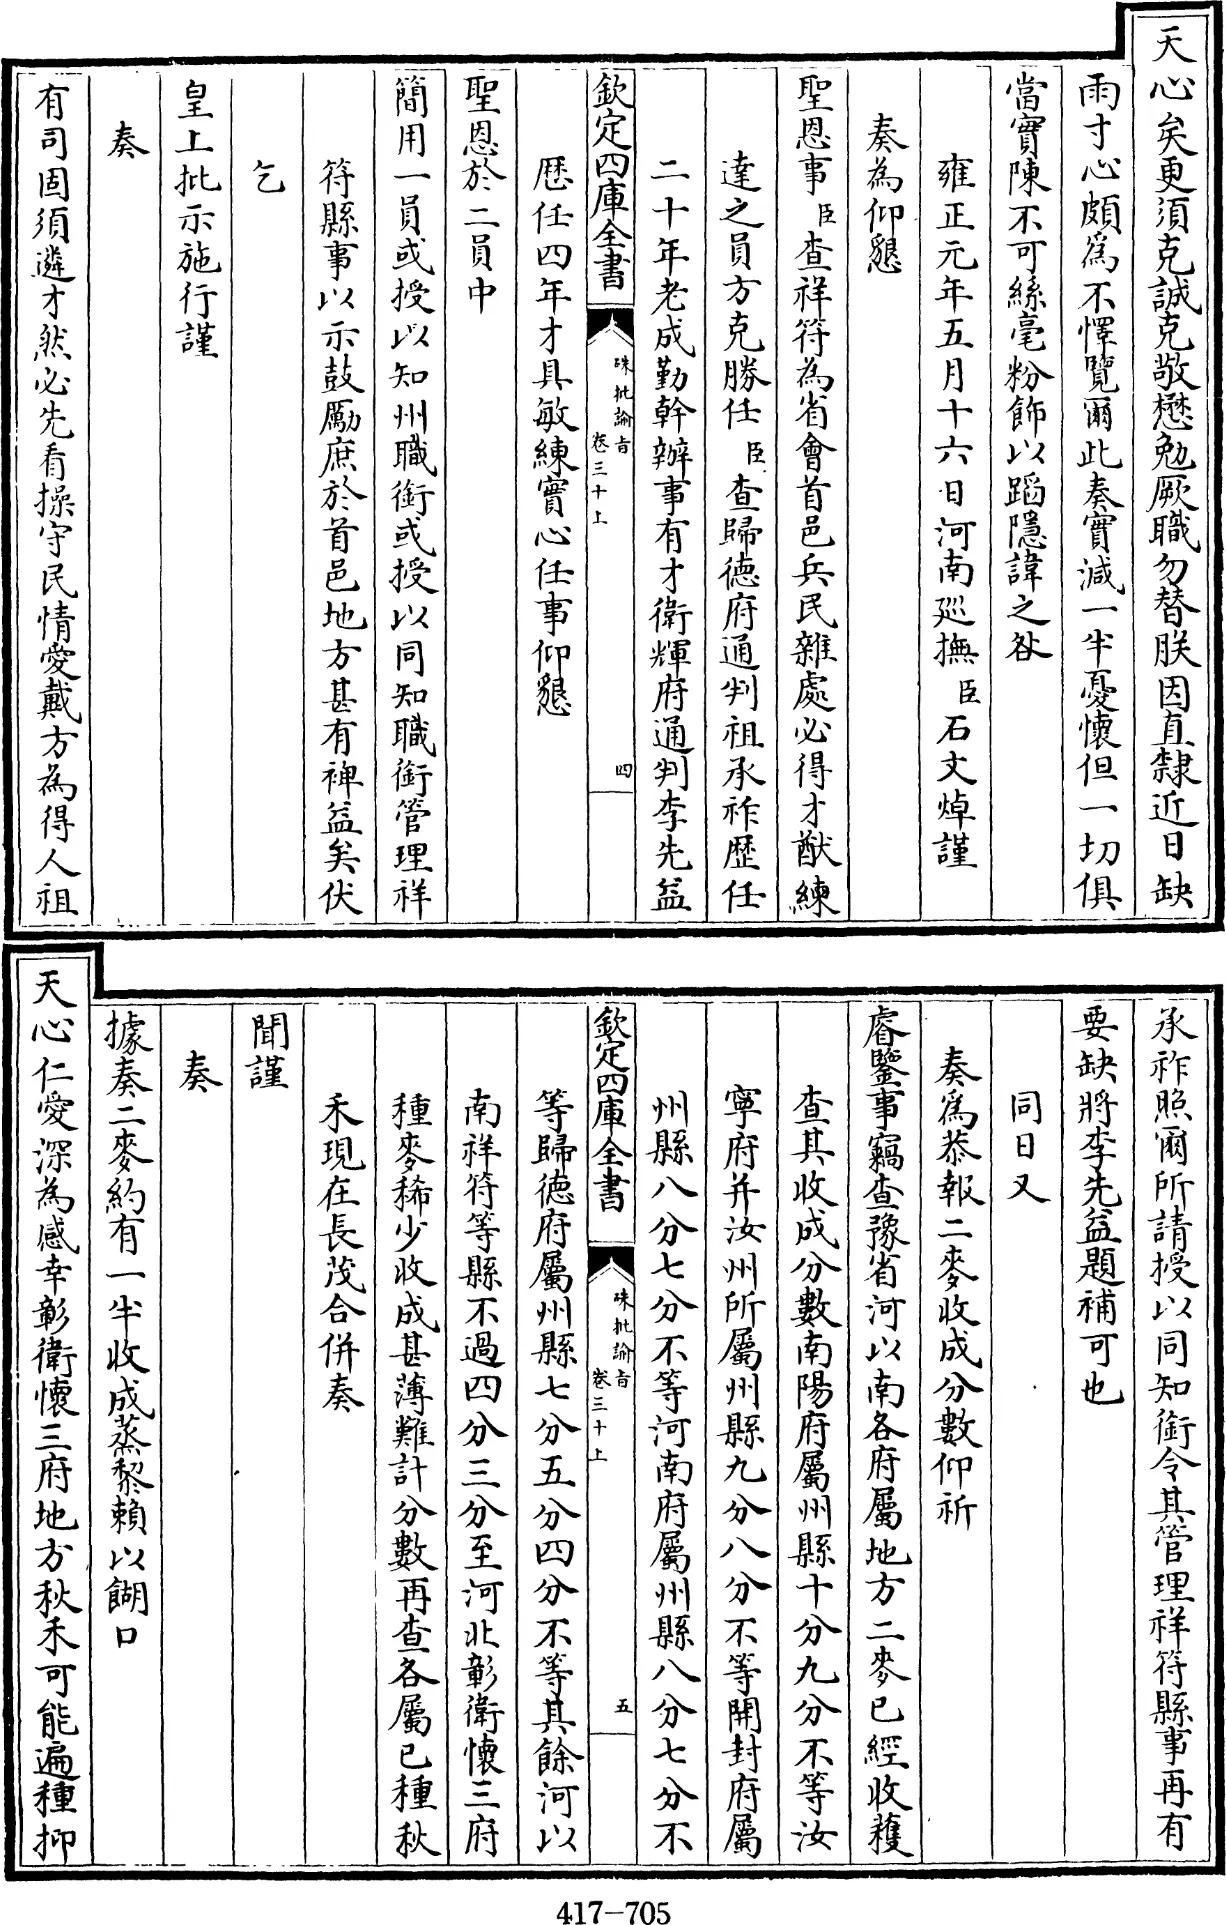 天心矣更須克誠克敬懋勉厥職勿替朕因直隸近日缺
雨寸心頗爲不懌覽爾此奏實減一半憂懷但一切俱
當實陳不可絲毫粉飾以蹈隱諱之咎
雍正元年五月十六日河南巡撫臣石文焯謹
奏為仰懇
聖恩事臣查祥符為省會首邑兵民雜處必得才猷練
達之員方克勝任臣查歸德府通判祖承祚歷任
二十年老成勤幹辦事有才衛輝府通判李先益
欽定四庫全書
硃批諭旨
卷三十上
四
歷任四年才具敏練實心任事仰懇
聖恩於二員中
簡用一員或授以知州職銜或授以同知職銜管理祥
符縣事以示鼓勵庶於首邑地方甚有裨益矣伏
乞
皇上批示施行謹
奏
有司固須遴才然必先看操守民情愛戴方為得人祖
承祚照爾所請授以同知銜令其管理祥符縣事再有
要缺將李先益題補可也
同日又
奏爲恭報二麥收成分數仰祈
睿鑒事竊查豫省河以南各府屬地方二麥已經收穫
查其收成分數南陽府屬州縣十分九分不等汝
寧府并汝州所屬州縣九分八分不等開封府屬
州縣八分七分不等河南府屬州縣八分七分不
欽定四庫全書
硃批諭旨
卷三十上
五
等歸德府屬州縣七分五分四分不等其餘河以
南祥符等縣不過四分三分至河北彰衛懷三府
種麥稀少收成甚薄難計分數再查各屬已種秋
禾現在長茂合併奏
聞謹
奏
據奏二麥約有一半收成蒸黎賴以餬口
天心仁愛深為感幸彰衛懷三府地方秋禾可能遍種抑
417-705